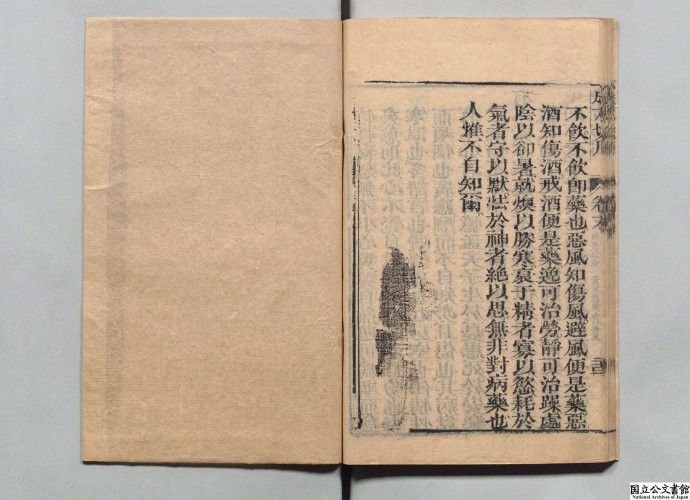 不飲不飲卽藥也惡風知傷風避風便是藥惡
酒知傷酒戒酒便是藥逸可治勞靜可治躁處
陰以卻暑就燠以勝寒衰于精者寡以慾耗於
氣者守以默怯於神者絶以思無非對病藥也
人惟不自知爾
国立公文書館
National Archives of Japan